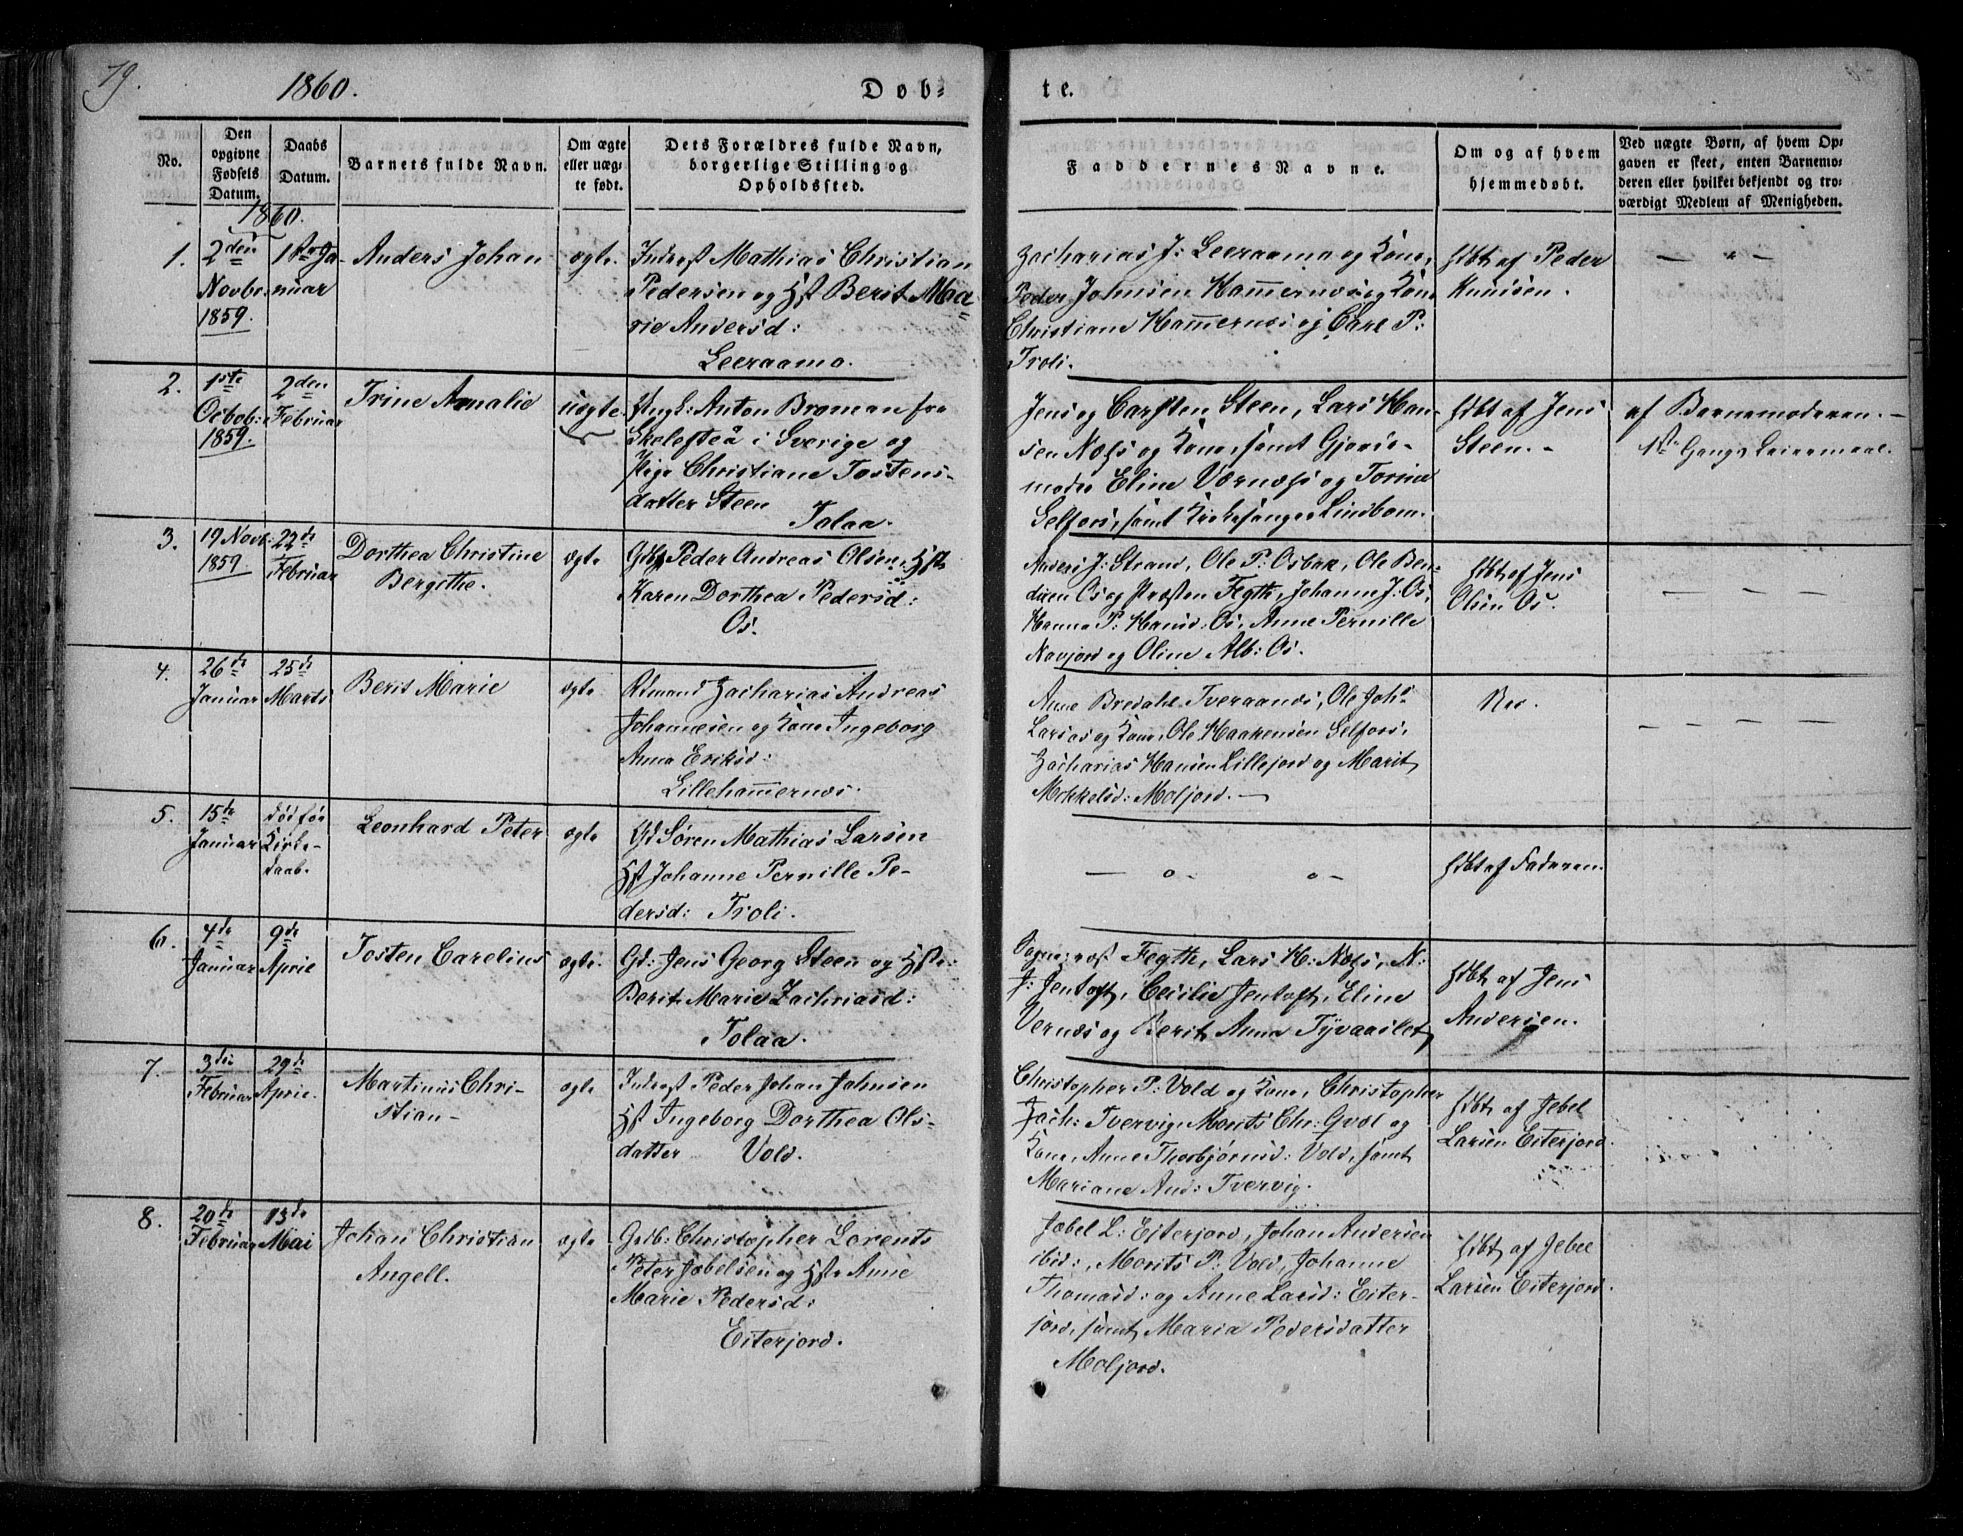 79.
1860.
Døb-
te.
No.
Den opgivne Fødsels Datum.
Daabs Datum.
Barnets fulde Navn.
Om ægte eller uæg-
te født.
Dets Forældres fulde Navn,
borgerlige Stilling og
Opholdssted.
Faddernes Navne.
Om og af hvem
hjemmedøbt.
Ved uægte Børn, af hvem Op-
gaven er skeet, enten Barnemo-
deren eller hvilket bekjendt og tro-
værdigt Medlem af Menigheden.
1860.
1.
2den
Novbr.
1859.
1ste Ja-
nuar
Anders Johan
ægte
Inderst Mathias Christian
Pedersen og Hst Berit Ma-
rie Andersd:
Leeraamo.
Zacharias J: Leeraamo og Kone,
Peder Johnsen Hammernæs og Kone
Christiane Hammernæs og Carl P:
Troli.
hdbt af Peder
Knudsen.
2.
1ste
Octob:
1859.
2den
Februar
Trine Amalie
uægte
Ungk: Anton Broman fra
Skelefteå i Sverige og
Pige Christiane Tostens-
datter Steen
Tolaa.
Jens og Carsten Steen, Lars Han-
sen Næss og Kone, samt Gjords-
moder Eline Værnæss og Torine
Selfors, samt Kirkesanger Lindbom.
hdbt af Jens
Steen.
af Barnemoderen.
1ste Gangs Leiermaal.
3.
19 Novb:
1859
22de
Februar
Dorthea Christine
Bergithe.
ægte
Gdb Peder Andreas Olsen, Hst
Karen Dorthea Pedersd:
Os.
Anders J: Strand, Ole P: Osbak, Ole Ben-
dixen Os og Præsten Fegth, Johanne J: Os,
Hanna P: Hansd: Os, Anne Pernille
Navjord og Oline Alb: Os.
hdbt af Jens
Olsen Os.
4.
26de
Januar
25de
Marts
Berit Marie
ægte
Zacharias Andreas
Johannesen og Kone Ingeborg
Anna Eriksd:
Lillehammernæs.
Anne Bredahl Tveraanæs, Ole Johs
Larsos og Kone, Ole Haakensen Selfors,
Zacharias Hansen Lillejord og Marit
Mikkelsd: Moljord.
Nei.
5.
15de
Januar
død før
Kirke-
daab.
Leonhard Peter
ægte
Gd Søren Mathias Larsen
Hst Johanne Pernille Pe-
dersd: Troli.
hdbt af Faderen.
6.
4de
Januar
9de
April
Tosten Carelius
ægte.
Gd: Jens Georg Steen og Hst:
Berit Marie Zachriasd:
Tolaa.
Sognepræst Fegth, Lars H: Næss, N:
J: Jentoft, Cecilie Jentoft, Eline
Vernæs og Berit Anna Tyvaaslet
hdbt af Jens
Andersen.
7.
3die
Februar
29de
April.
Martinus Chri-
stian
ægte
Inderst Peder Johan Johnsen
Hst Ingeborg Dorthea Ols-
datter Vold.
Christopher P: Vold og Kone, Christopher
Zach: Tvervig, Morits Chr: Gvæl og
Kone, Anne Thorbjørnsd: Vold, samt
Mariane And: Tvervig.
hdbt af Jebel
Larsen Eiterjord.
8.
20de
Februar
13de
Mai
Johan Christian
Angell.
ægte
Gdb: Christopher Lorents
Peter Jebelsen og Hst Anne
Marie Pedersd:
Eiterjord.
Jebel L: Eiterjord, Johan Andersen
ibid:, Morits P: Vold, Johanne
Thomasd: og Anne Larsd: Eiter-
jord, samt Maria Pedersdatter
Moljord.
hdbt af Jebel
Larsen Eiterjord.